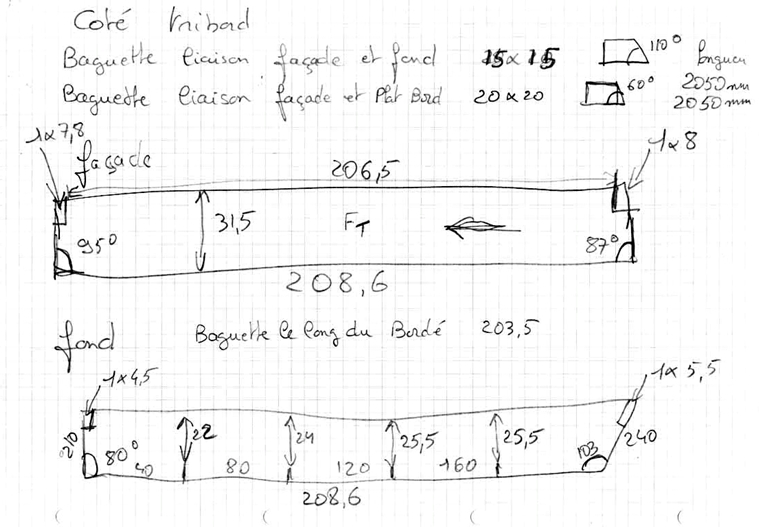 Coté tribord
Baguette liaison façade et fond 15 x 15 110° longueur
Baguette liaison façade et Plat Bord 20 x 20 60° 2050 mm
2050 mm
1x7,8
façade
206,5
1x8
31,5
FT
95°
87°
208,6
fond
Baguette le long du Bordé 203,5
1x4,5
1x 5,5
210
80°
22
24
25,5
25,5
103
240
40
80
120
160
208,6